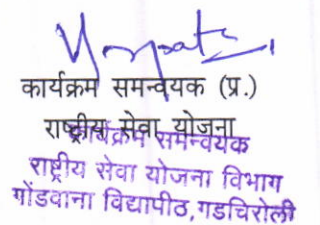 कार्यक्रम समन्वयक (प्र.)
राष्ट्रीय सेवा योजना
कार्यक्रम समन्वयक
राष्ट्रीय सेवा योजना विभाग
गोंडवाना विद्यापीठ,गडचिरोली